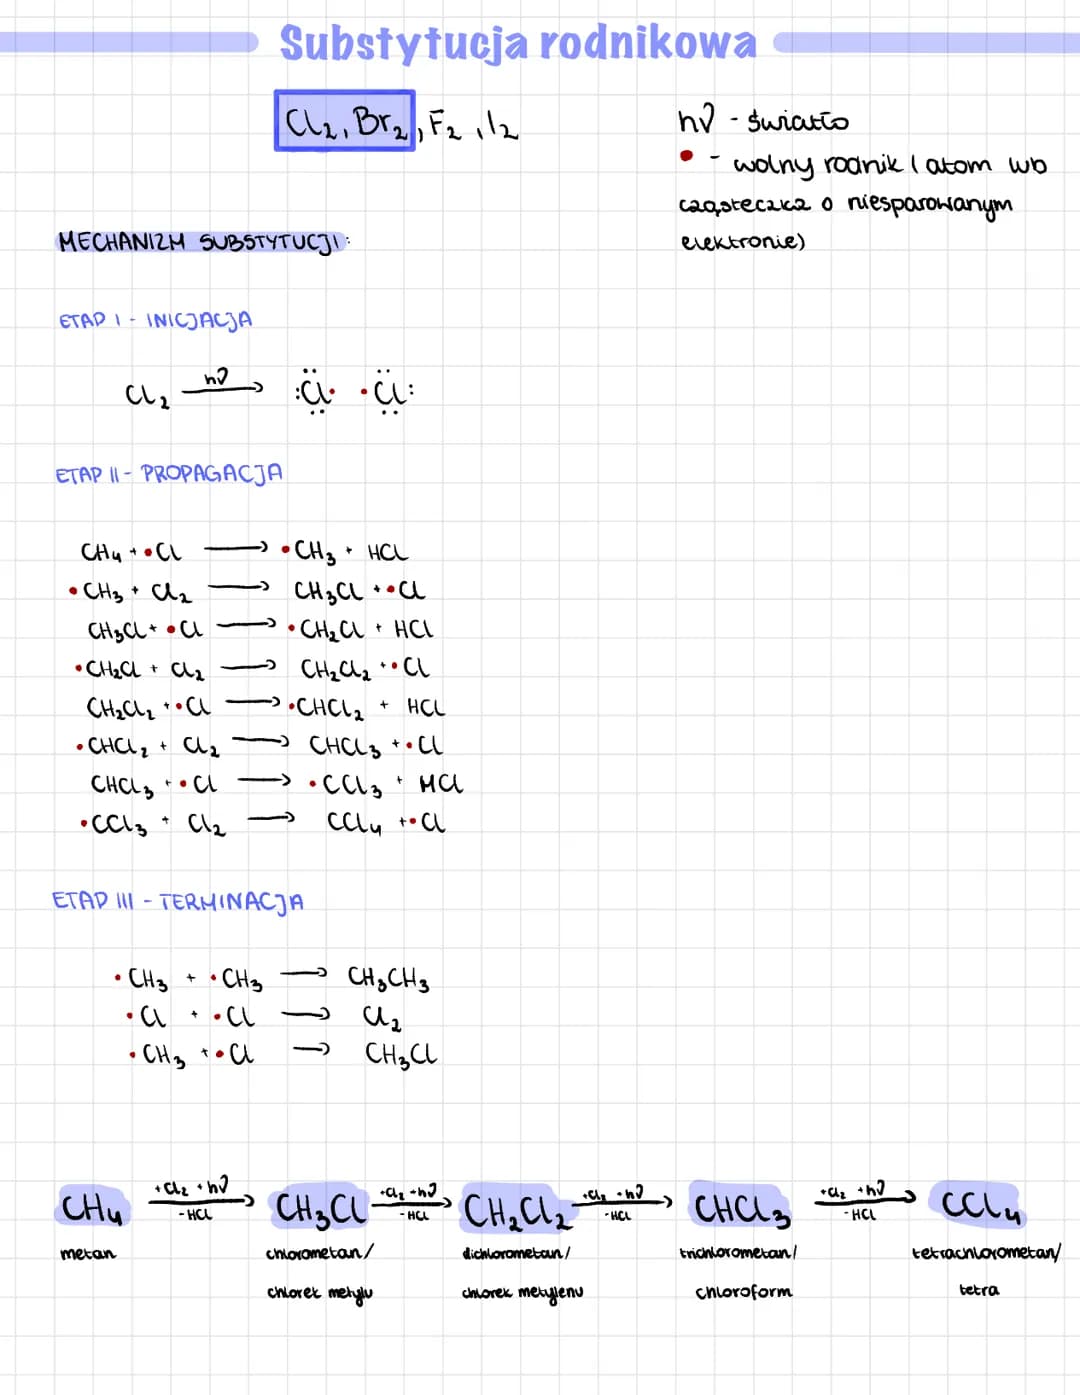 Substytucja rodnikowa
Cl₂, Br₂, F₂, I₂
hν - światło
• - wolny rodnik (atom wb
cząsteczka o niesparowanym
elektronie)
MECHANIZM SUBSTYTUCJI:
ETAP I - INICJACJA
Cl₂ —hν→ :Cl• •Cl:
ETAP II - PROPAGACJA
CH₄ + •Cl → •CH₃ + HCl
•CH₃ + Cl₂ → CH₃Cl + •Cl
CH₃Cl + •Cl → •CH₂Cl + HCl
•CH₂Cl + Cl₂ → CH₂Cl₂ + •Cl
CH₂Cl₂ + •Cl → •CHCl₂ + HCl
•CHCl₂ + Cl₂ → CHCl₃ + •Cl
CHCl₃ + •Cl → •CCl₃ + HCl
•CCl₃ + Cl₂ → CCl₄ + •Cl
ETAP III - TERMINACJA
•CH₃ + •CH₃ → CH₃CH₃
•Cl + •Cl → Cl₂
•CH₃ + •Cl → CH₃Cl
+Cl₂ +hν +Cl₂ +hν +Cl₂ +hν +Cl₂ +hν
CH₄ → CH₃Cl → CH₂Cl₂ → CHCl₃ → CCl₄
-HCl -HCl -HCl -HCl
metan chlorometan/ dichlorometan/ trichlorometan/ tetrachlorometan/
chlorek metylu chlorek metylenu chloroform tetra